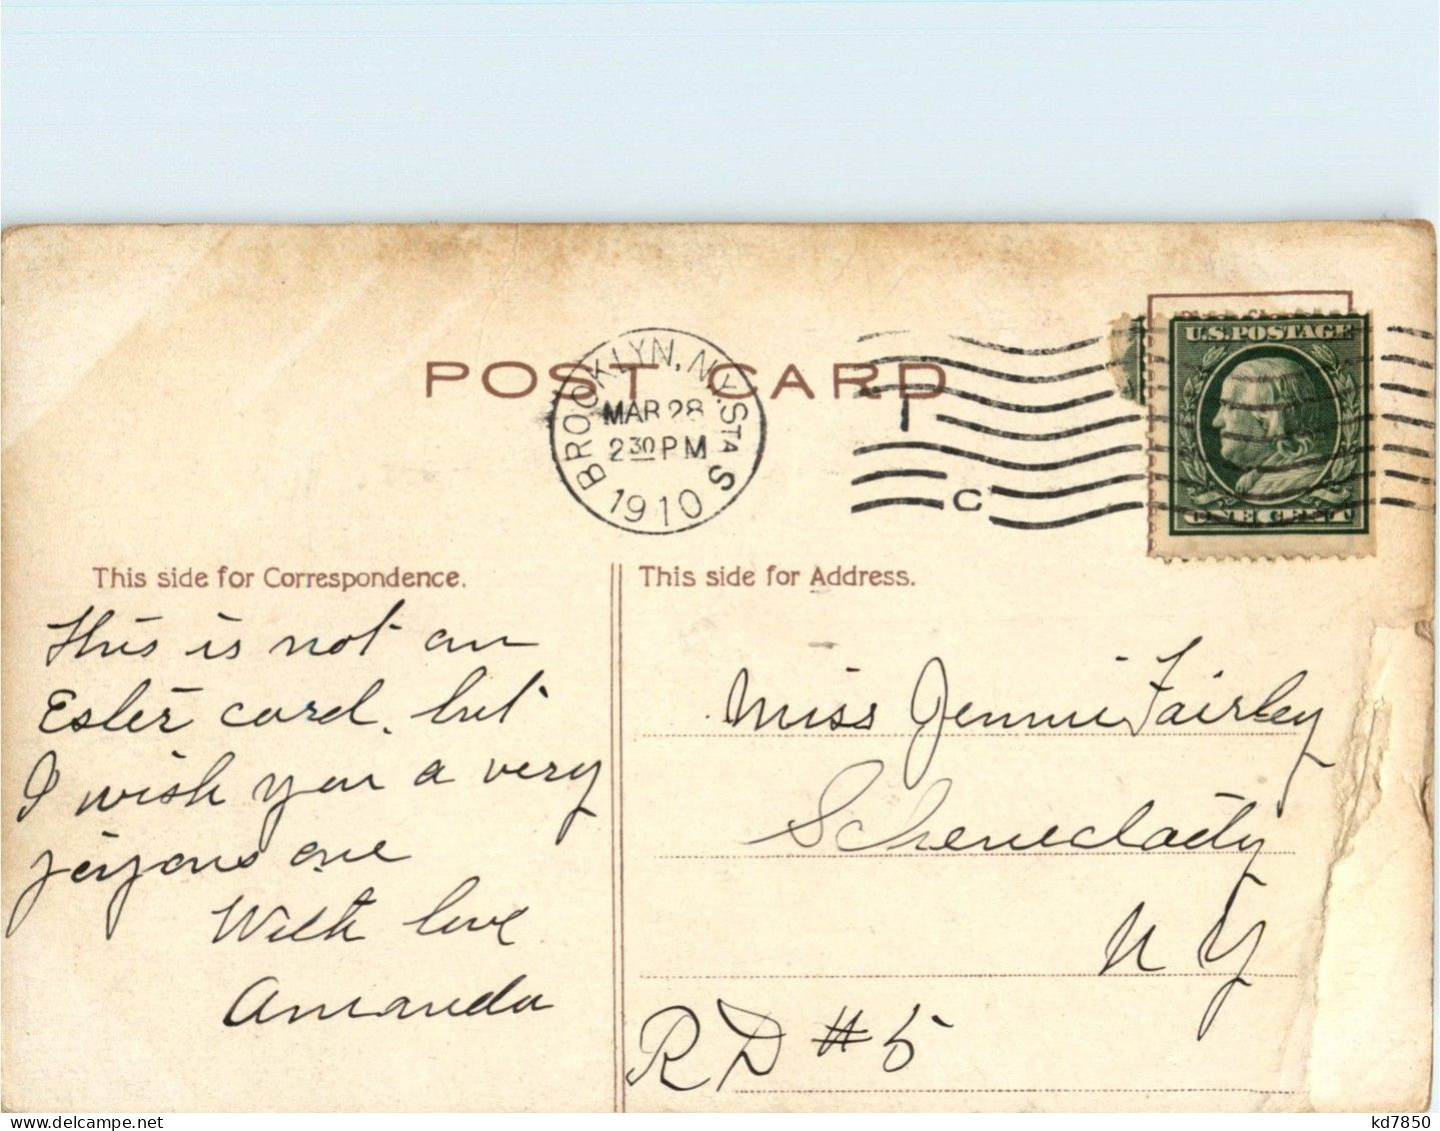 POST CARD
BROOKLYN, N.Y. STA S
MAR 28
2 30 PM
1910
C
U.S. POSTAGE
ONE CENT
This side for Correspondence.
This side for Address.
This is not an
Ester card. but
I wish you a very
joyous one
With love
Amanda
Miss Jennie Fairley
Schenectady
N Y
RD # 5
delcampe.net
kd7850